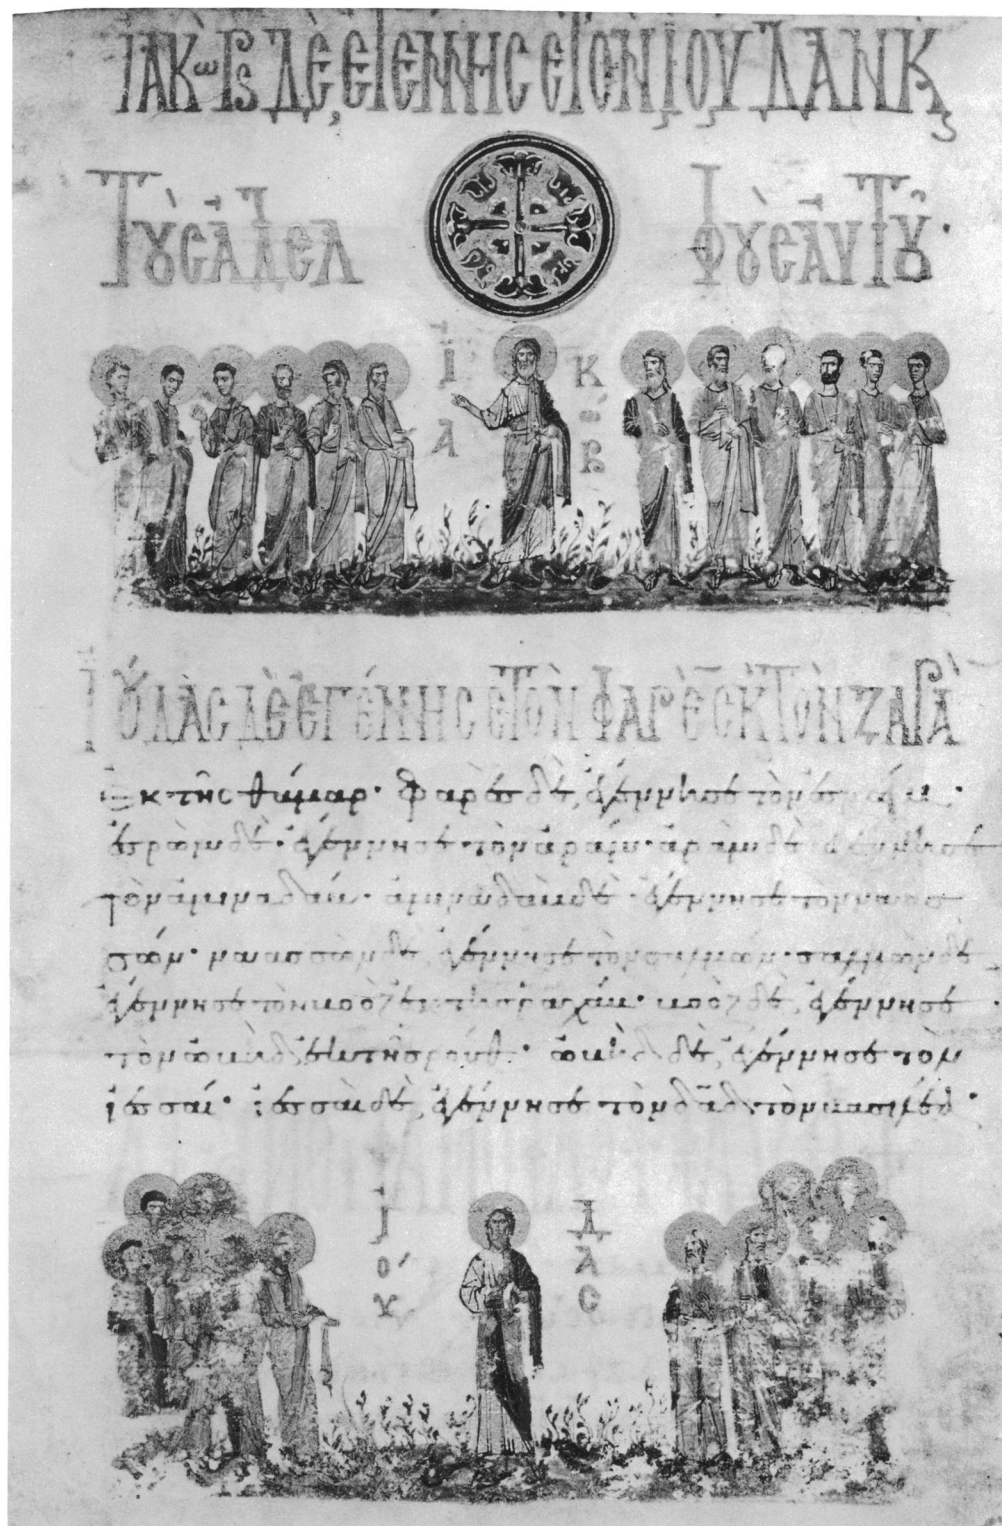 ἸΑΚῺΒ ΔῈ ἘΓΈΝΝΗСΕ ΤῸΝ ἸΟΎΔΑΝ Κ̣
ΤȢ̀С ἈΔΕΛ ΦȢ̀С ἈΥΤȢ͂·
ἸΑ ΚῺΒ
ἸΟΎΔΑС ΔῈ ἘΓΈΝΝΗСΕ ΤῸΝ ΦΑΡῈС Κ ΤῸΝ ΖΑΡᾺ
ἐκ τῆς θάμαρ· φαρὲς δὲ ἐγέννησε τὸν ἐσρώμ·
ἐσρὼμ δὲ ἐγέννησε τὸν ἀράμ· ἀρὰμ δὲ ἐγέννησε
τὸν ἀμιναδάμ· ἀμιναδὰμ δὲ ἐγέννησε τὸν νασσ
σών· ναασσὼν δὲ ἐγέννησε τὸν σαλμών· σαλμὼν δὲ
ἐγέννησε τὸν βοὸζ ἐκ τῆς ῥαχάβ· βοὸζ δὲ ἐγέννησε
τὸν ὠβὴδ ἐκ τῆς ῥούθ· ὠβὴδ δὲ ἐγέννησε τὸν
ἰεσσαί· ἰεσσαὶ δὲ ἐγέννησε τὸν δᾱδ τὸν βασιλέα·
ἸΟΎ ΔΑС